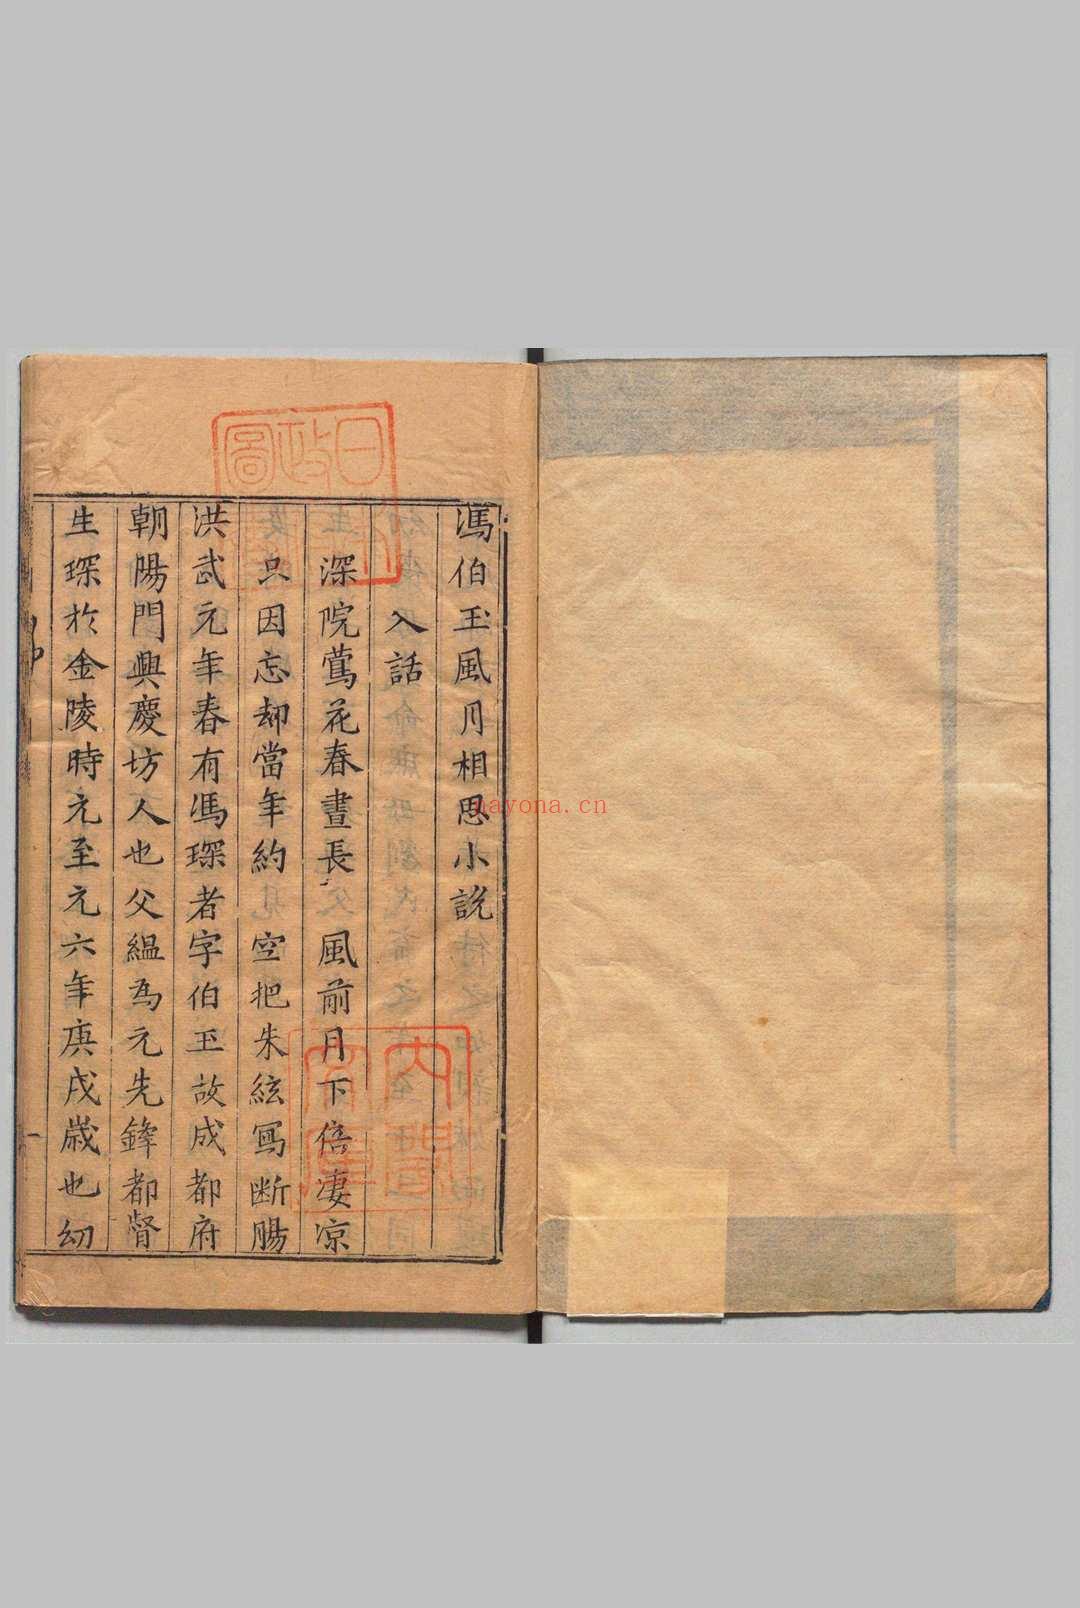 馮伯玉風月相思小說
入話
深院鶯花春晝長 風前月下倍凄凉
只因忘却當年約 空把朱絃寫断腸
洪武元年春有馮琛者字伯玉故成都府
朝陽門興慶坊人也父緼為元先鋒都督
生琛於金陵時元至元六年庚戌歲也幼
一
日
政
圖
內閣
文庫
nayona.cn